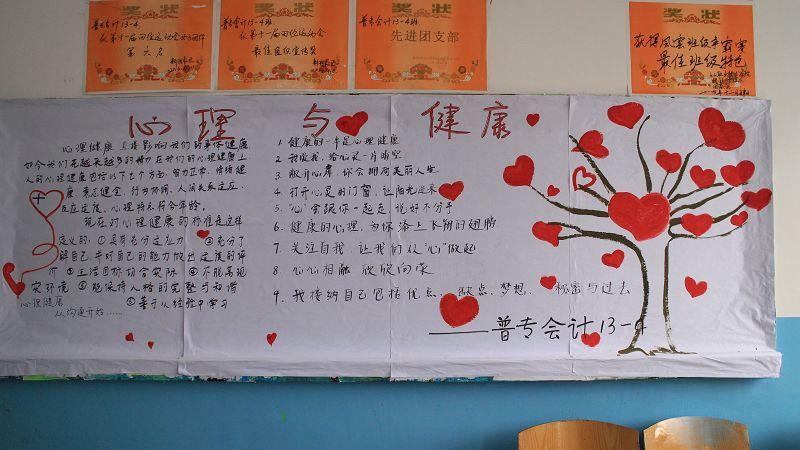 奖状
普专会计13-4班
在第十一届田径运动会
第六名
奖状
普专会计13-4班
在第十一届田径运动会
最佳宣传奖
奖状
普专会计13-4
先进团支部
奖状
获得风云班级争霸赛
最佳班级特色
心理与健康
心理健康直接影响我们的身体健康
如今我们
人的心理健康包括以下七个方面：智力正常、情绪健
康、意志健全、行为协调、人际关系适应、
反应适度、心理特点符合年龄。
现在对心理健康的标准是这样
定义的：①具有充分适应力 ②充分了
解自己，并对自己的能力做出适度的评
价 ③生活目标切合实际 ④不脱离现
实环境 ⑤能保持人格的完整与和谐
⑥善于从经验中学习
心理健康
从沟通开始……
1. 健康的一半是心理健康
2. 我爱我，给心灵一片晴空
3. 敞开心扉，你会拥有美丽人生
4. 打开心灵的门窗，让阳光进来
5. “心”会跟你一起走，说好不分手
6. 健康的心理，为你添上飞翔的翅膀
7. 关注自我，让我们从“心”做起
8. 心心相融 欣欣向荣
9. 我接纳自己包括优点、缺点、梦想、秘密与过去
——普专会计13-4